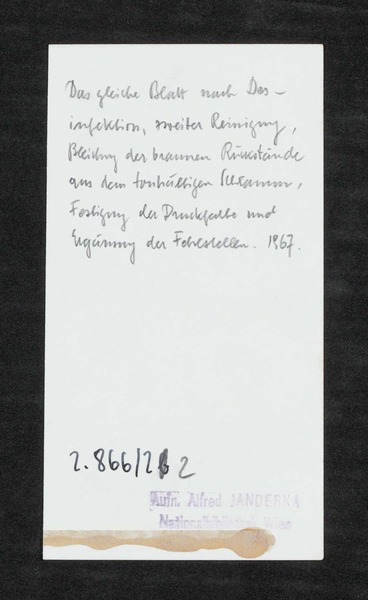 Das gleiche Blatt nach Des-
infektion, zweiter Reinigung,
Bleichung der braunen Rückstände
aus dem tonhältigen Schlamm,
Festigung der Druckfarbe und
Ergänzung der Fehlstellen. 1967.
2.866/2 2
Aufn. Alfred JANDERKA
Nationalbibliothek Wien